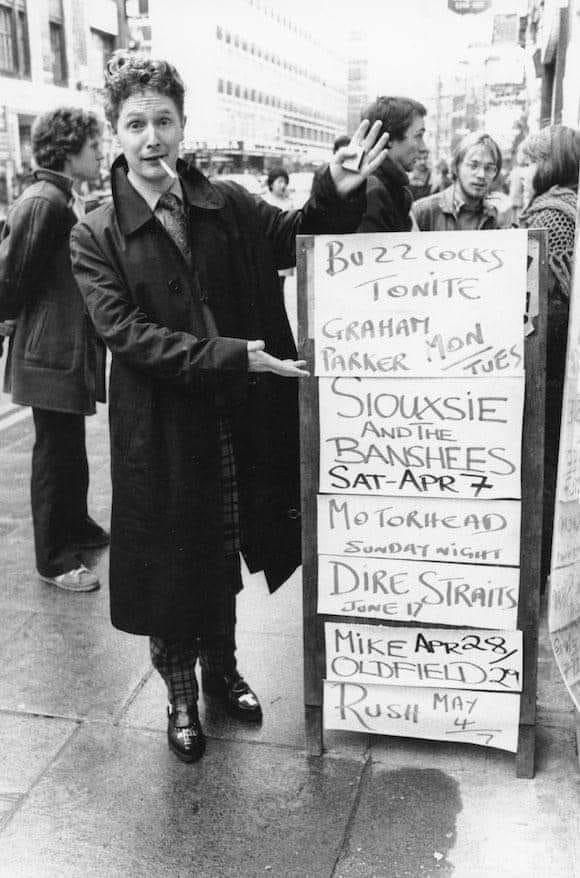 BUZZCOCKS
TONITE
GRAHAM
PARKER MON/TUES
SIOUXSIE
AND THE
BANSHEES
SAT-APR 7
MOTORHEAD
SUNDAY NIGHT
DIRE STRAITS
JUNE 17
MIKE APR 28/
OLDFIELD 29
RUSH MAY
4/7